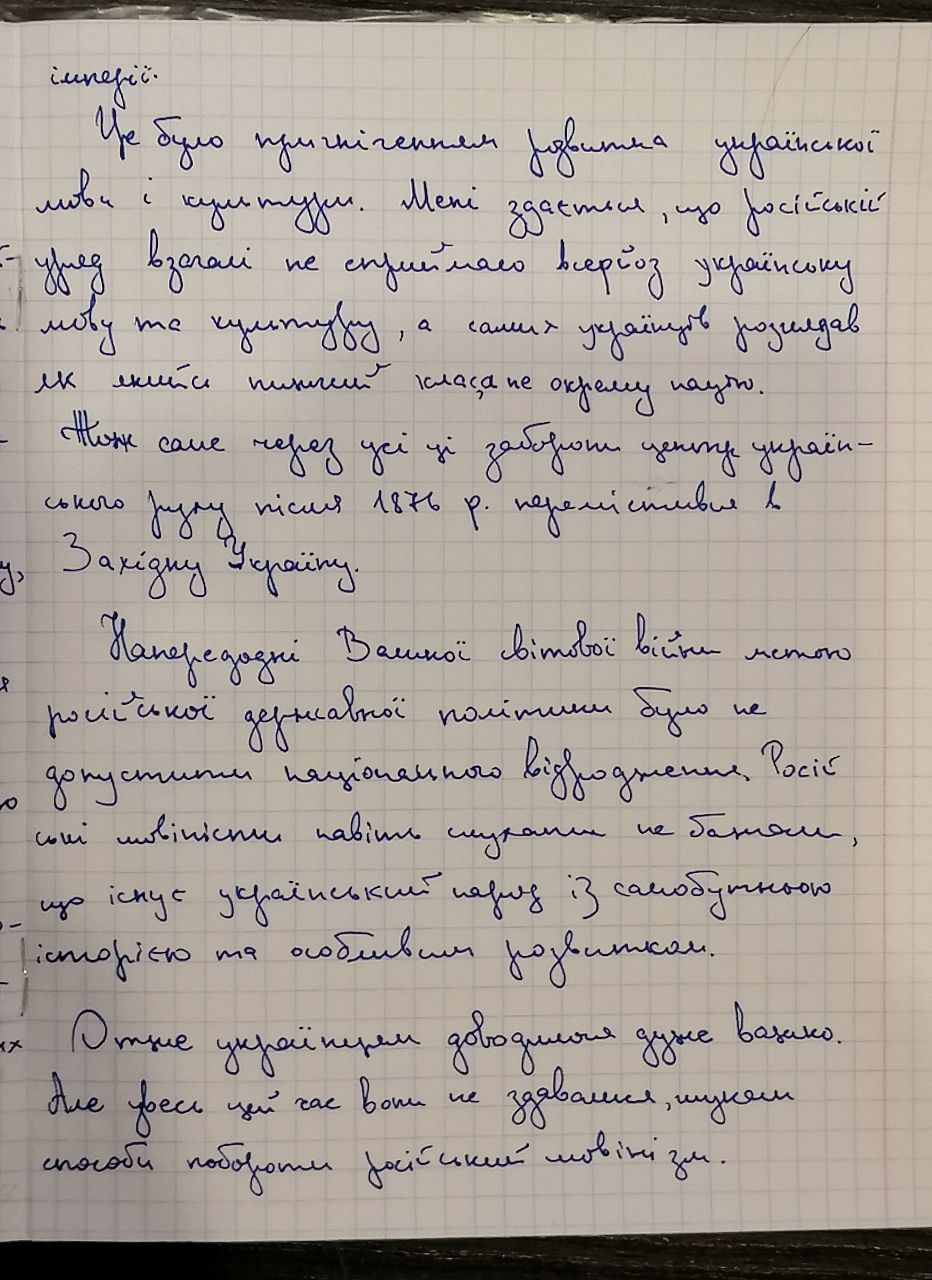 імперії.
Це було пригніченням розвитка української
мови і культури. Мені здається, що російській
уряд взагалі не сприймало всерйоз українську
мову та культуру, а самих українців розглядав
як якийсь нижчий клас, а не окрему націю.
Тож саме через усі ці заборони центр україн-
ського руху після 1876 р. перемістився в
Західну Україну.
Напередодні Великої світової війни метою
російської державної політики було не
допустити національного відродження. Росій
ські шовіністи навіть слухати не бажали,
що існує український народ із самобутньою
історією та особливим розвитком.
Отже українцям доводилося дуже важко.
Але увесь цей час вони не здавалися, шукали
способи побороти російський шовінізм.